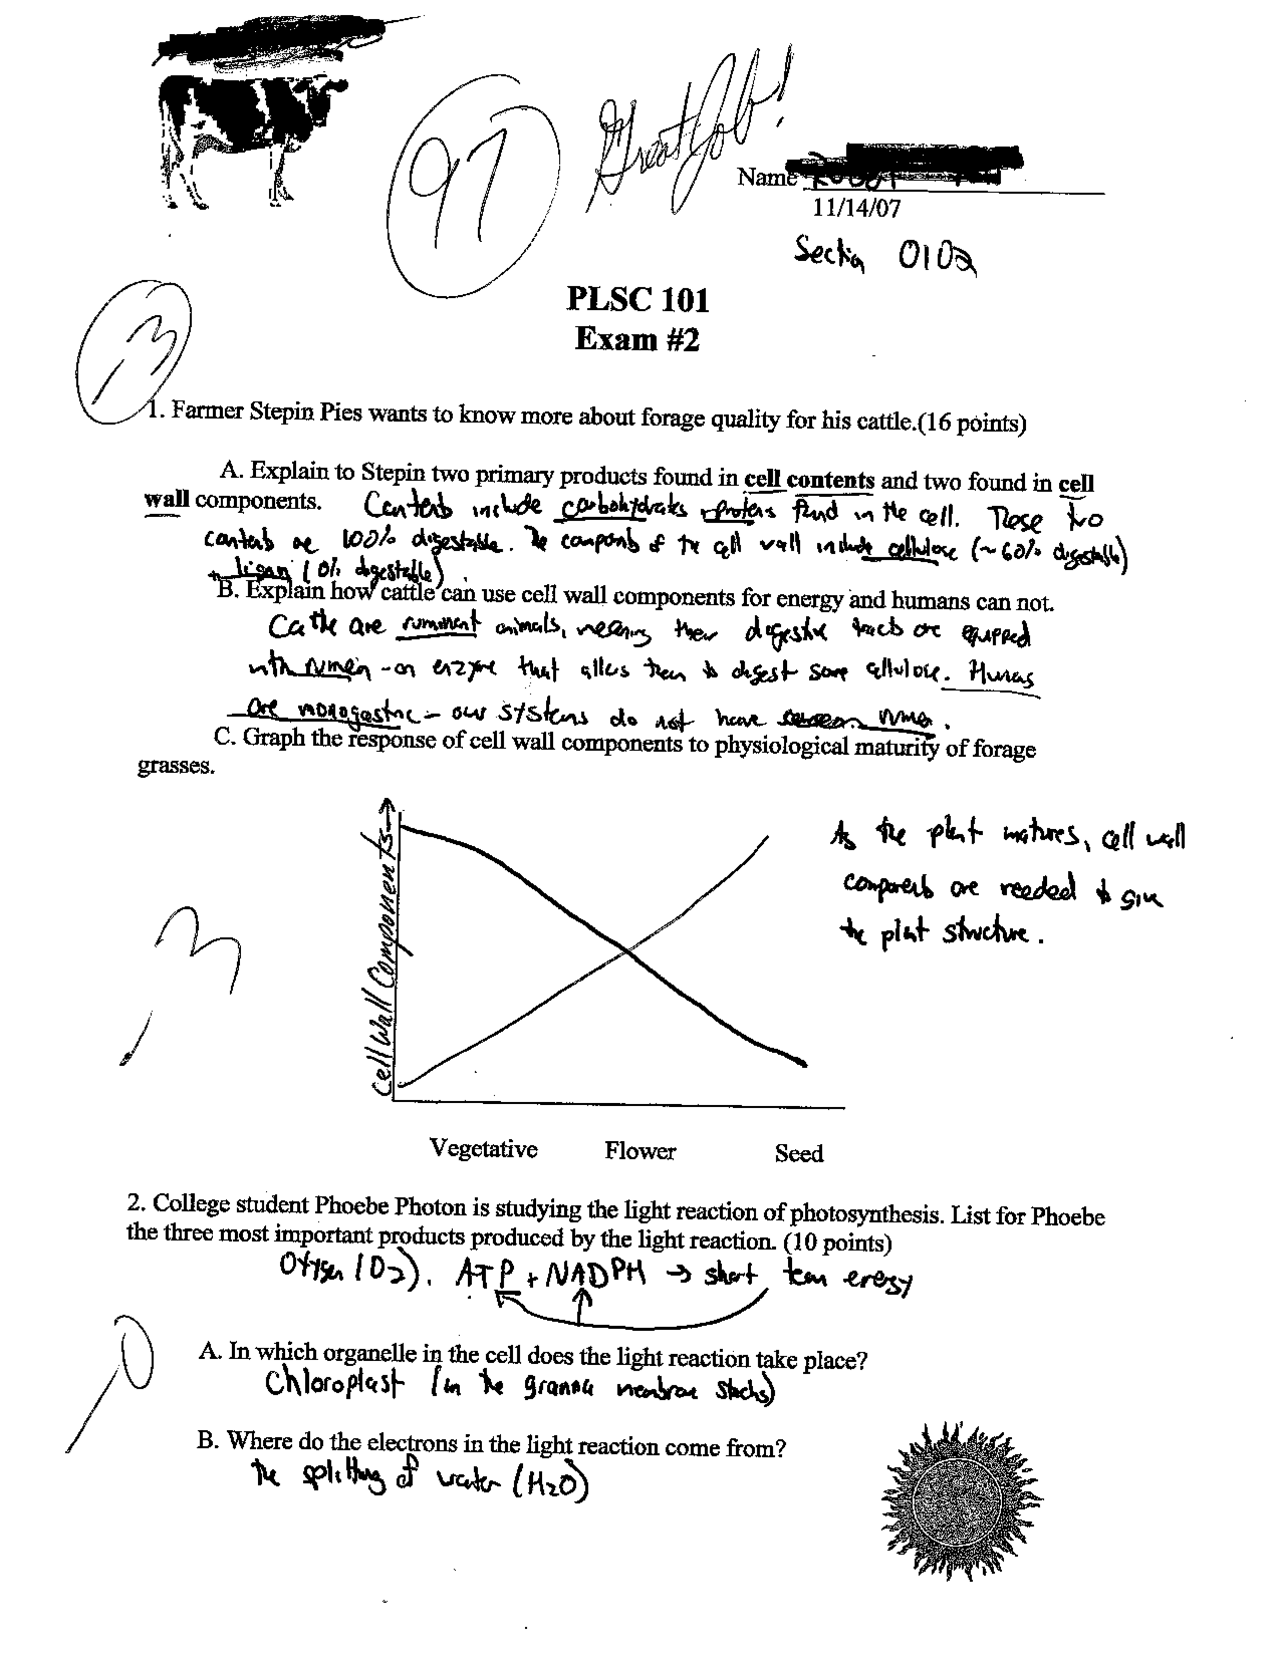 97
Great Job!
Name
11/14/07
Section 0102
PLSC 101
Exam #2
13
1. Farmer Stepin Pies wants to know more about forage quality for his cattle.(16 points)
A. Explain to Stepin two primary products found in cell contents and two found in cell
wall components. Contents include carbohydrates + proteins found in the cell. These two
contents are 100% digestable. The components of the cell wall include cellulose (~60% digestable)
+ ligan (0% digestable).
B. Explain how cattle can use cell wall components for energy and humans can not.
Cattle are ruminant animals, meaning their digestive tracts are equipped
with rumen - an enzyme that allows them to digest some cellulose. Humans
are monogastric - our systems do not have rumen.
C. Graph the response of cell wall components to physiological maturity of forage
grasses.
Cell Wall Components →
As the plant matures, cell wall
components are needed to give
the plant structure.
-3
Vegetative Flower Seed
2. College student Phoebe Photon is studying the light reaction of photosynthesis. List for Phoebe
the three most important products produced by the light reaction. (10 points)
Oxygen (O2). ATP + NADPH → short term energy
-0
A. In which organelle in the cell does the light reaction take place?
Chloroplast (in the granna membrane stacks)
B. Where do the electrons in the light reaction come from?
the splitting of water (H2O)